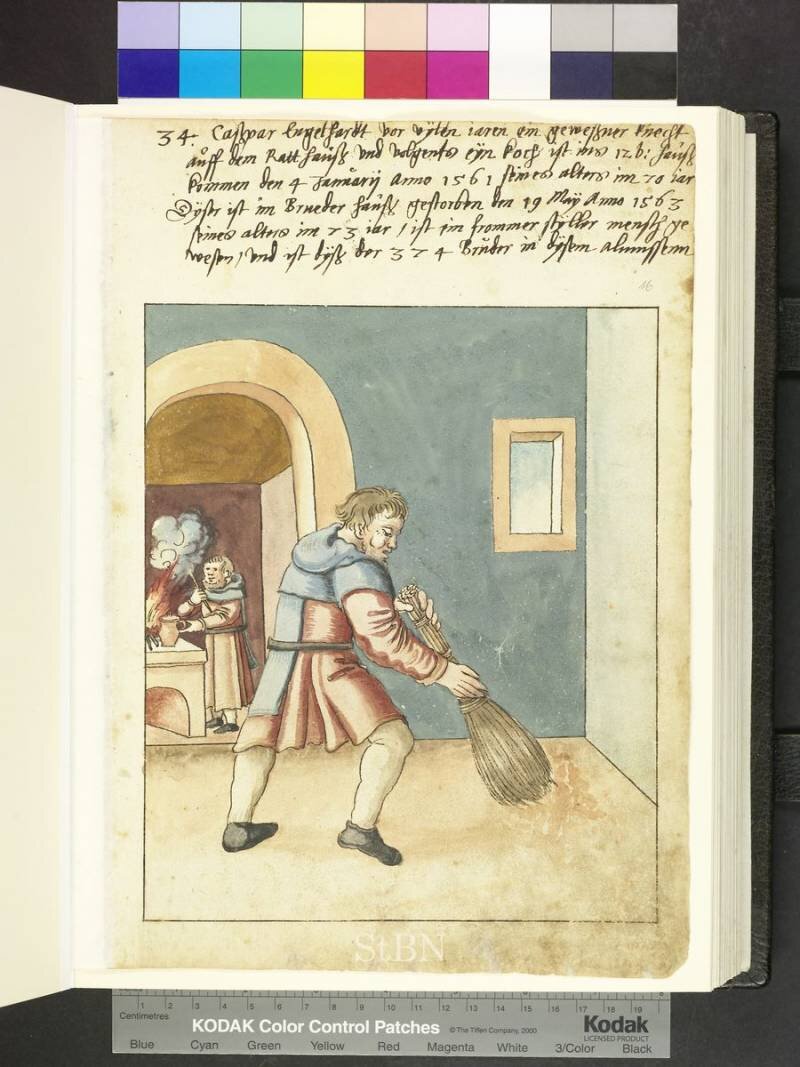 34. Caspar Engelhardt vor vylen iaren ein geweßner knecht
auff dem Ratthauß vnd volgents eyn koch ist ins 12 b: hauß
kommen den 4 Januarij Anno 1561 seines alters im 70 iar
Dyser ist im Brueder hauß gestorben den 19 Maÿ Anno 1563
seines alters im 73 iar / ist ein frommer styller mensch ge
wesen / vnd ist dyß der 374 Bruder in dysem almussenn
16
StBN
1 2 3 4 5 6 7 8 9 10 11 12 13 14 15 16 17 18 19
Centimetres
KODAK Color Control Patches © The Tiffen Company, 2000 Kodak
LICENSED PRODUCT
Blue Cyan Green Yellow Red Magenta White 3/Color Black